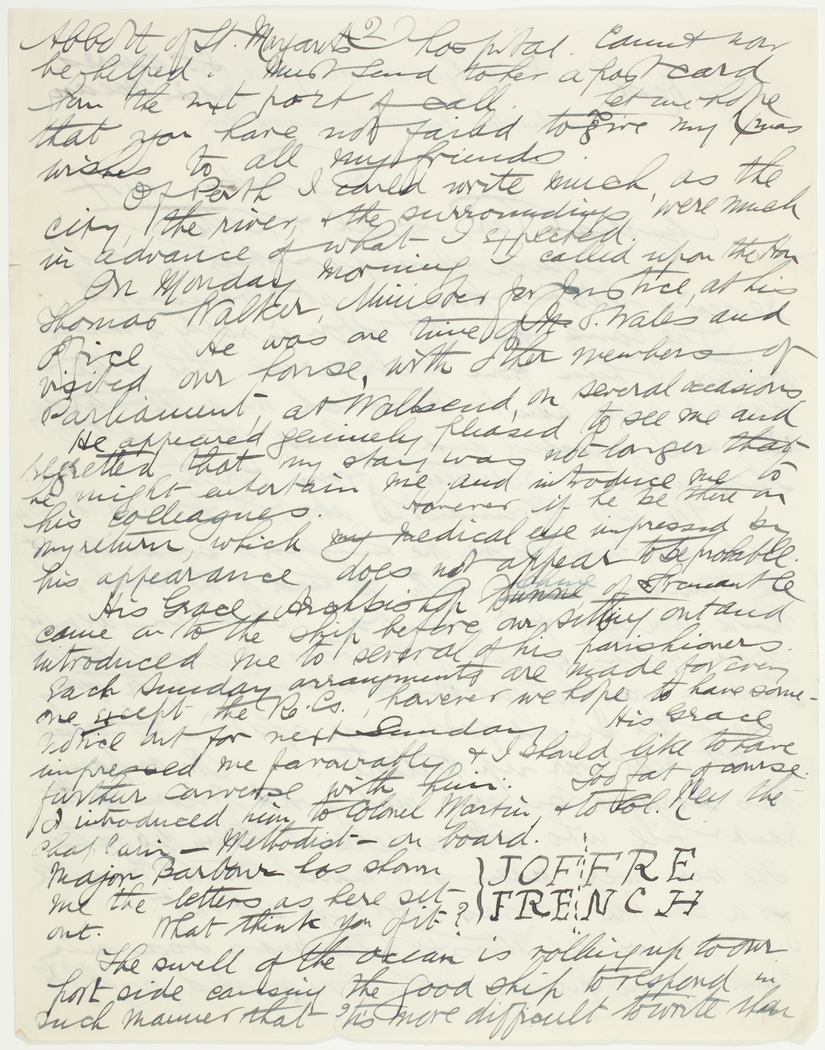 Abbott of St. Margarets? hospital. Cannot now
be helped. Must send to her a post card
from the next port of call. Let us hope
that you have not failed to give my Xmas
wishes to all my friends.
Of Perth I could write much, as the
city, the river, & the surroundings, were much
in advance of what I expected.
On Monday morning I called upon the Hon
Thomas Walker, Minister for Justice, at his
Office He was one time of N. S. Wales and
visited our house, with other members of
Parliament, at Wallsend, on several occasions.
He appeared genuinely pleased to see me and
regretted that my stay was not longer that
he might entertain me, and introduce me to
his colleagues. However if he be there on
my return, which my medical eye impressed by
his appearance does not appear to be probable.
His Grace, Archbishop Dunne of Fremantle
came on to the ship before our sitting out and
introduced me to several of his parishioners.
Each Sunday arrangements are made for every
one except the R.C's., however we hope to have some-
notice out for next Sunday His Grace
impressed me favourably & I should like to have
further converse with him. Too fat of course.
I introduced him to Colonel Martin, & to Col. the
Chaplain – Methodist – on board.
Major Barbour has shown
me the letters as here set
out. What think you of it?
JOFFRE
FRENCH
The swell of the ocean is rolling up to our
port side causing the good ship to respond in
such manner that 'tis more difficult to write than